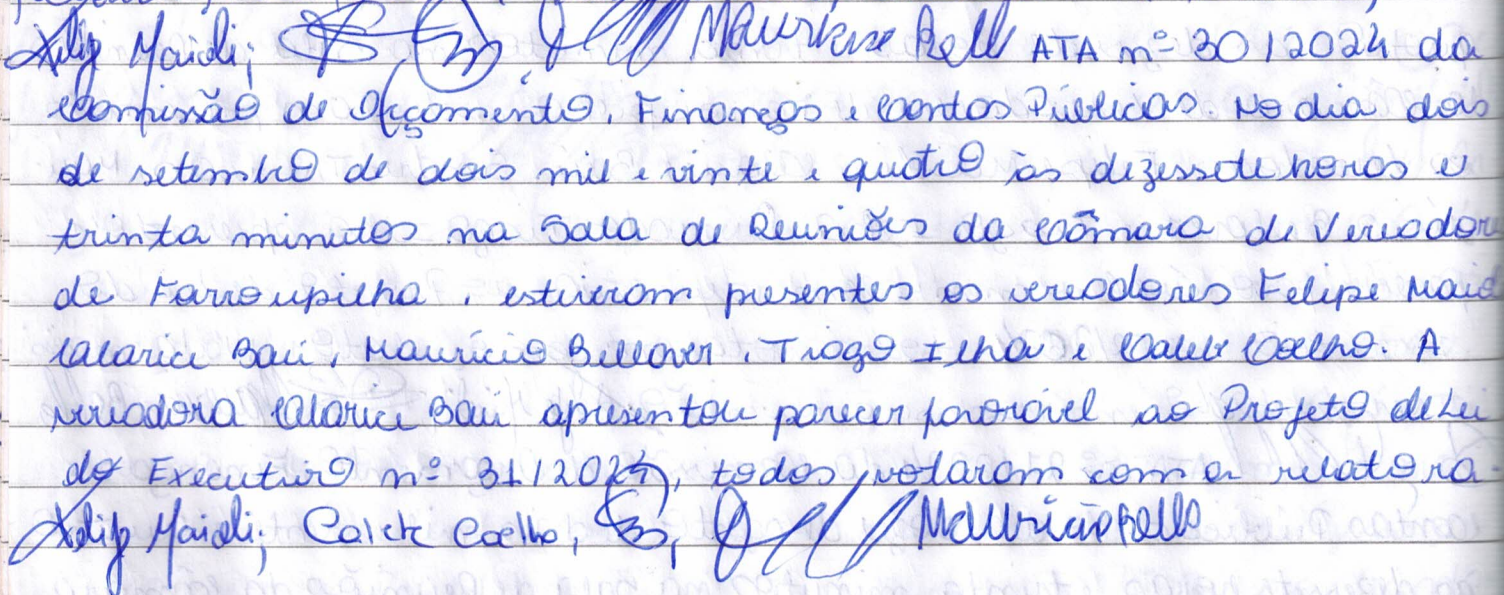 Felip Maioli; Maurício Bell ATA nº 30/2024 da
Comissão de Orçamento, Finanças e Contas Públicas. No dia dois
de setembro de dois mil e vinte e quatro às dezessete horas e
trinta minutos na Sala de Reuniões da Câmara de Vereador
de Farroupilha, estiveram presentes os vereadores Felipe Maio
Clarice Baú, Maurício Bellaver, Tiago Ilha e Calebe Coelho. A
vereadora Clarice Baú apresentou parecer favorável ao Projeto de Lei
do Executivo nº 31/2024, todos votaram com a relatora.
Felip Maioli; Caleb Coelho, Maurício Bell